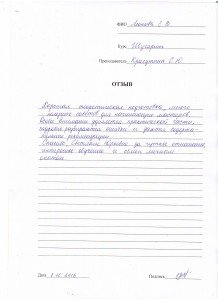 ФИО Панова С. В.
Курс Шугаринг
Преподаватель Брагутина С. Ю.
ОТЗЫВ
Хорошая теоретическая подготовка, много
советов для начинающих мастеров.
Особое внимание уделяется практической части,
подробно разбираются ошибки и даются
рекомендации.
Спасибо, Светлана Юрьевна за чуткое отношение,
интересное обучение и обмен личным
опытом.
Дата
Подпись